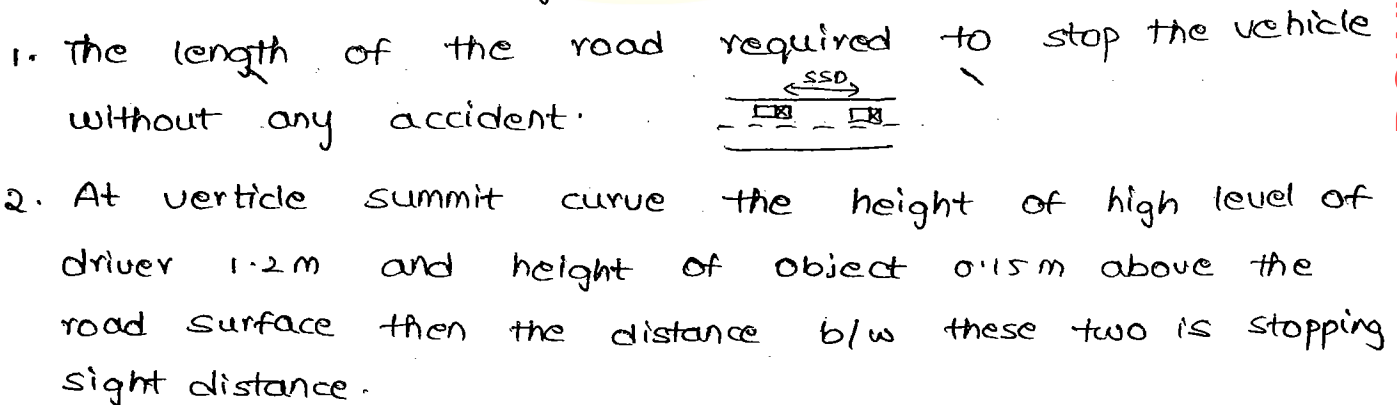 1. The length of the road required to stop the vehicle
SSD
without any accident.
2. At verticle summit curve the height of high level of
driver 1.2 m and height of object 0.15 m above the
road surface then the distance b/w these two is stopping
sight distance.